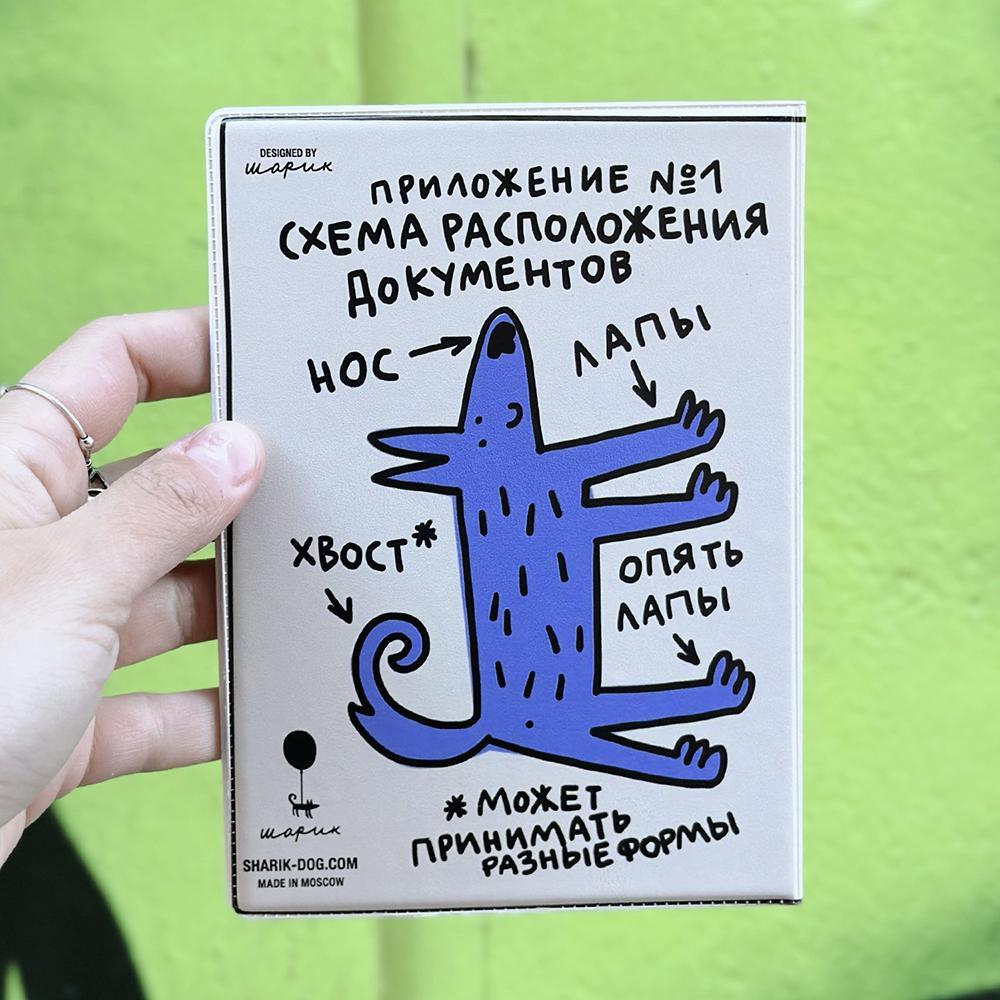 DESIGNED BY
шарик
ПРИЛОЖЕНИЕ №1
СХЕМА РАСПОЛОЖЕНИЯ
ДОКУМЕНТОВ
НОС
ЛАПЫ
ХВОСТ*
ОПЯТЬ
ЛАПЫ
* МОЖЕТ
ПРИНИМАТЬ
РАЗНЫЕ ФОРМЫ
шарик
SHARIK-DOG.COM
MADE IN MOSCOW